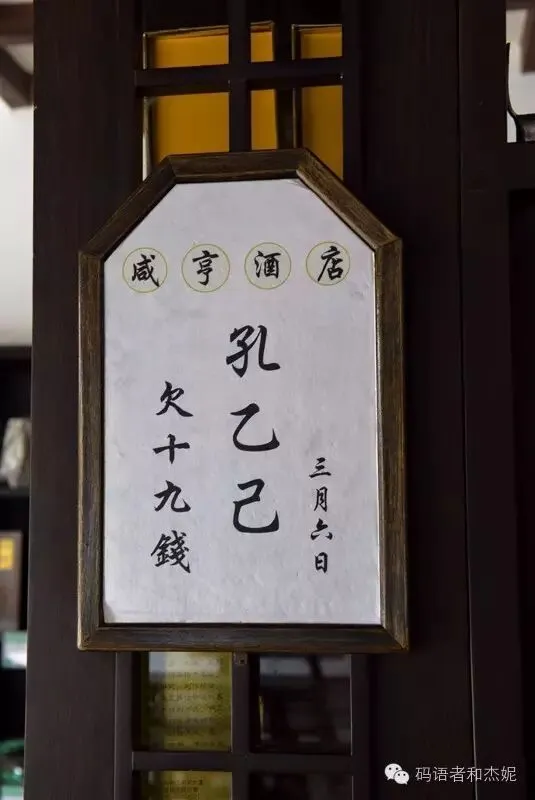 咸亨酒店
三月六日
孔乙己
欠十九錢
码语者和杰妮